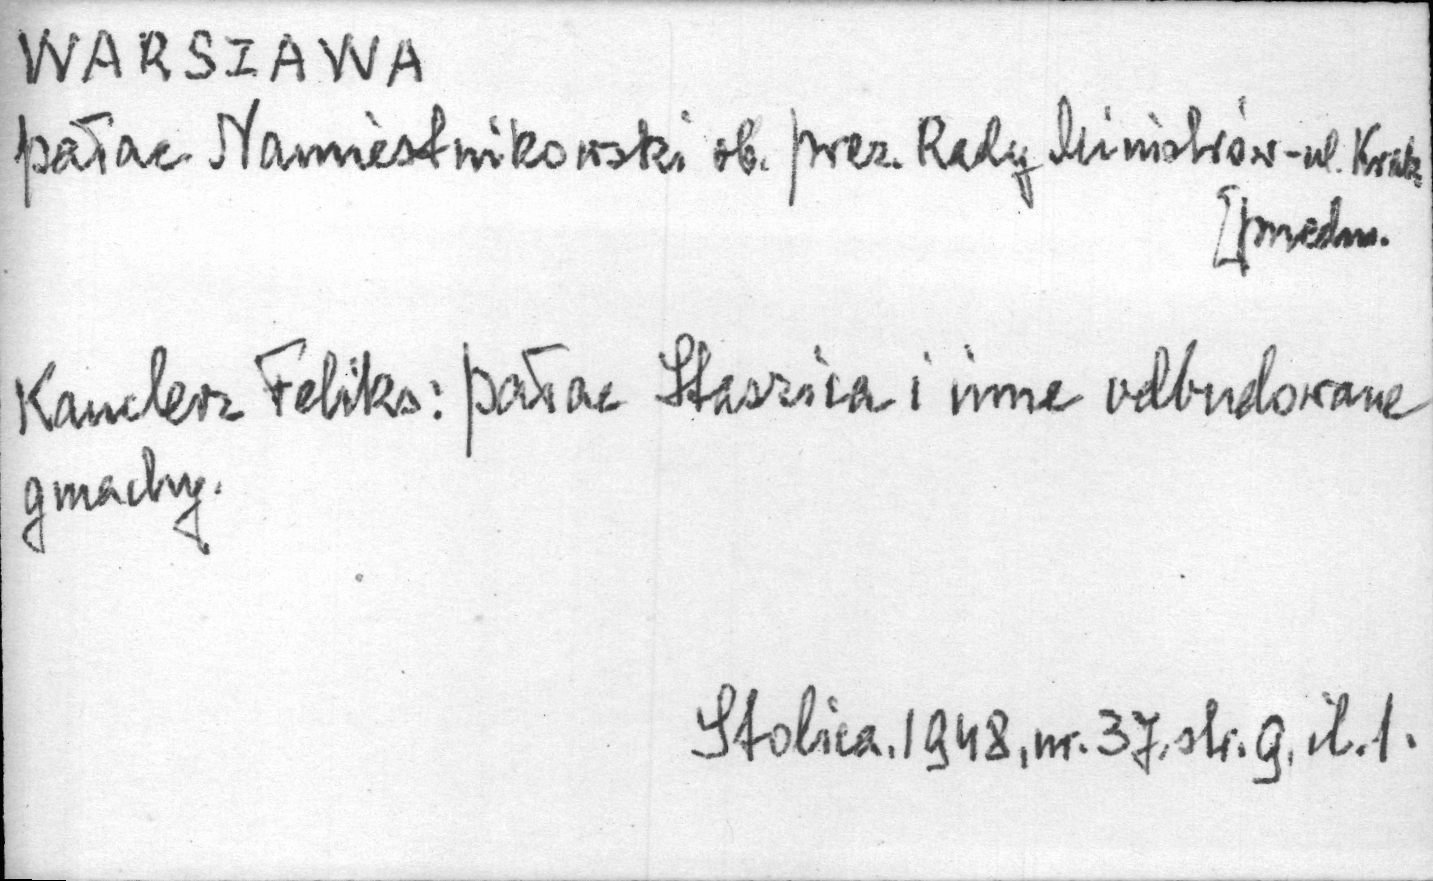 WARSZAWA
pałac Namiestnikowski ob. prez. Rady Ministrów - ul. Krak.
[przedm.
Kanclerz Feliks: pałac Staszica i inne odbudowane
gmachy.
Stolica. 1948, nr. 37, str. 9, il. 1.